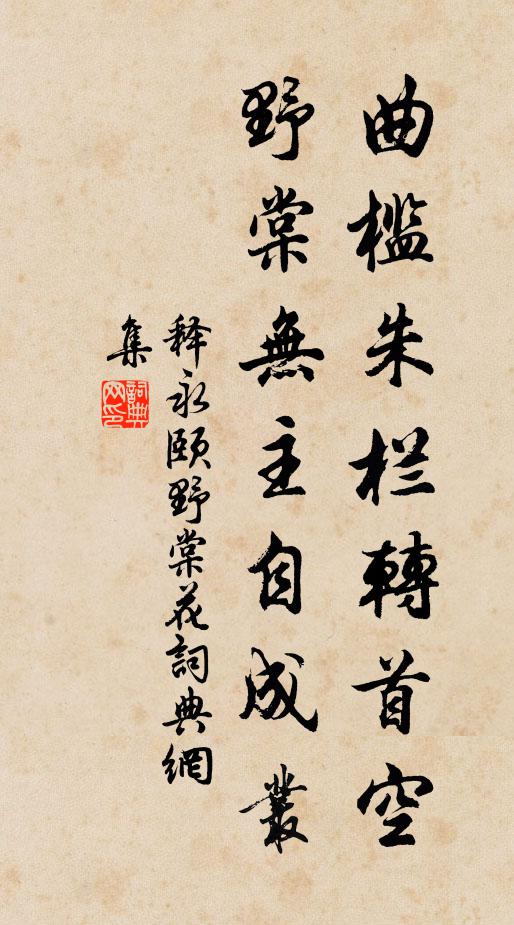 曲檻朱栏轉首空
野棠無主自成叢
释永頤野棠花詞典網
集
詞典网印